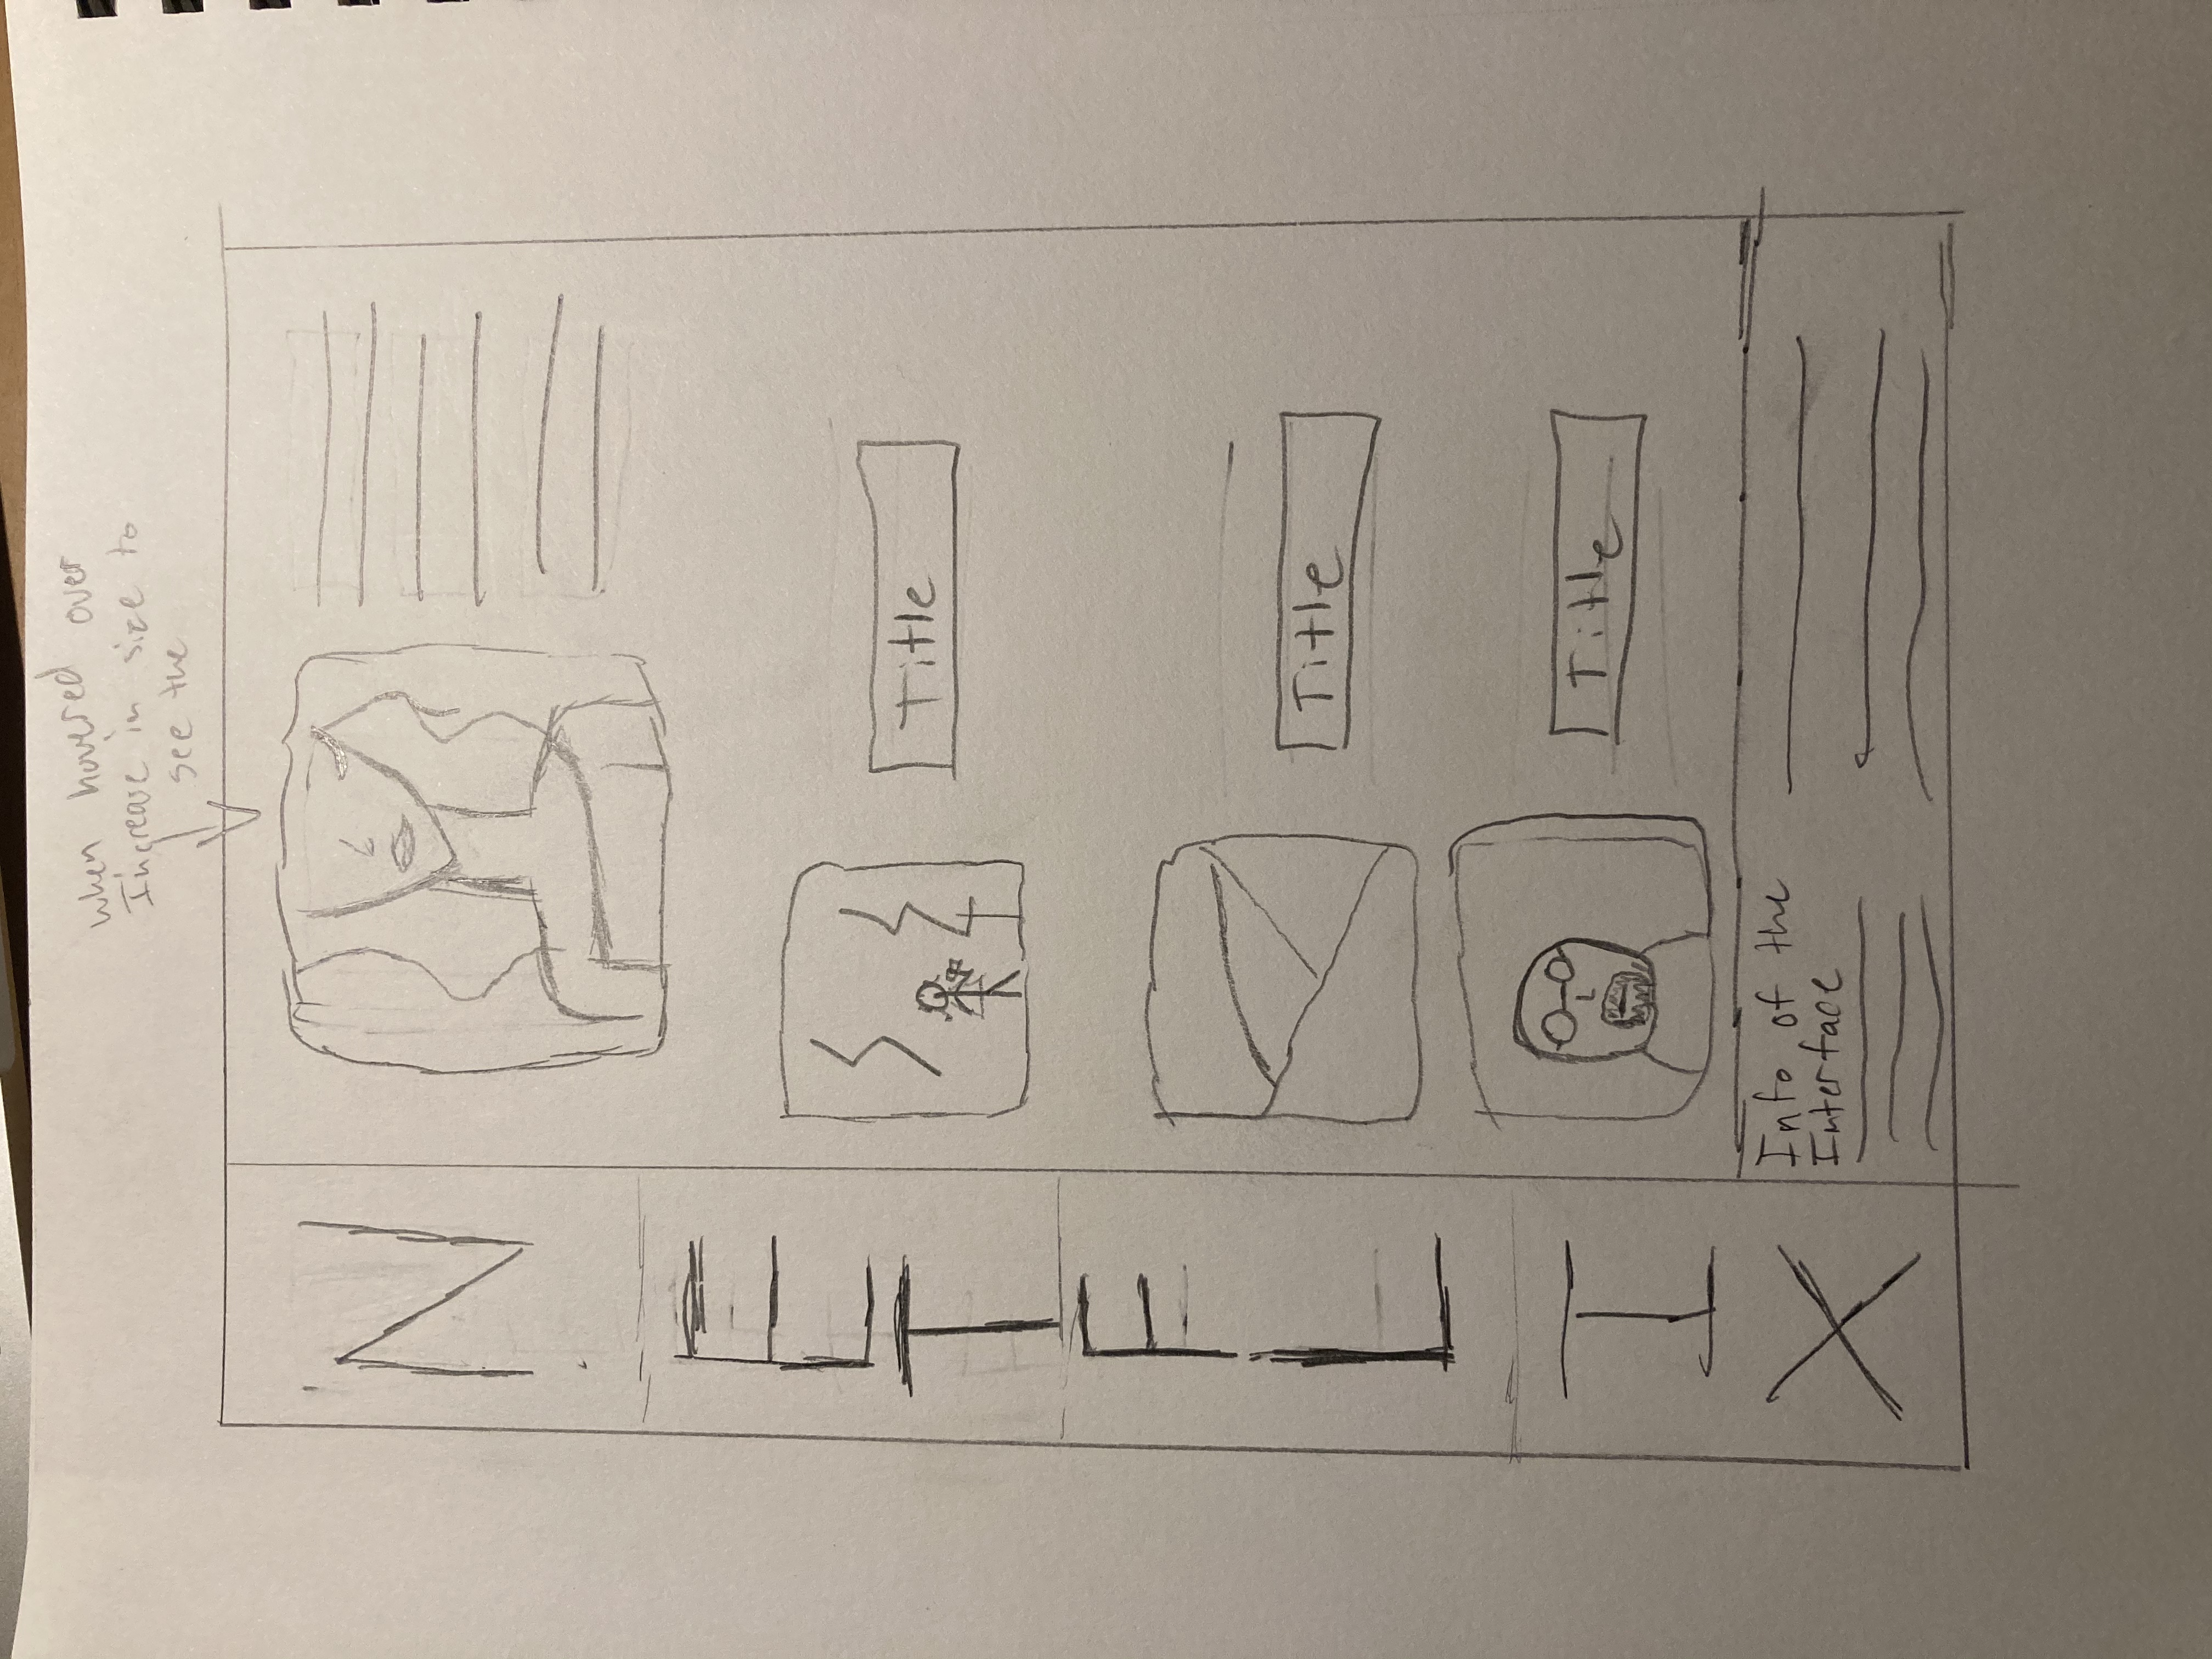 when hovered over
Increase in size to
see the
N
E
T
F
L
I
X
Title
Title
Title
Info of the
Interface